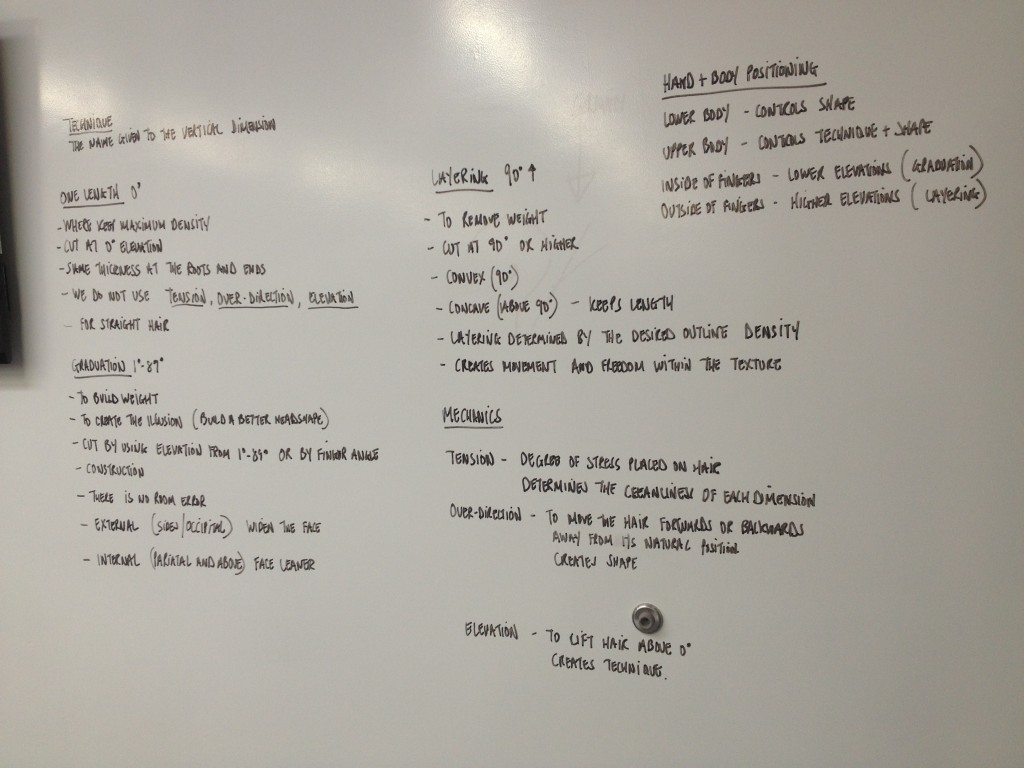 TECHNIQUE
THE NAME GIVEN TO THE VERTICAL DIMENSION
ONE LENGTH 0°
- WHERE KEEP MAXIMUM DENSITY
- CUT AT 0° ELEVATION
- SAME THICKNESS AT THE ROOTS AND ENDS
- WE DO NOT USE TENSION, OVER-DIRECTION, ELEVATION
- FOR STRAIGHT HAIR
GRADUATION 1°-89°
- TO BUILD WEIGHT
- TO CREATE THE ILLUSION (BUILD A BETTER HEADSHAPE)
- CUT BY USING ELEVATION FROM 1°-89° OR BY FINGER ANGLE
- CONSTRUCTION
- THERE IS NO ROOM ERROR
- EXTERNAL (SIDES/OCCIPITAL) WIDEN THE FACE
- INTERNAL (PARIATAL AND ABOVE) FACE LEANER
LAYERING 90° ↑
- TO REMOVE WEIGHT
- CUT AT 90° OR HIGHER
- CONVEX (90°)
- CONCAVE (ABOVE 90°) - KEEPS LENGTH
- LAYERING DETERMINED BY THE DESIRED OUTLINE DENSITY
- CREATES MOVEMENT AND FREEDOM WITHIN THE TEXTURE
MECHANICS
TENSION - DEGREE OF STRESS PLACED ON HAIR
DETERMINES THE CLEANLINESS OF EACH DIMENSION
OVER-DIRECTION - TO MOVE THE HAIR FORWARDS OR BACKWARDS
AWAY FROM ITS NATURAL POSITION
CREATES SHAPE
ELEVATION - TO LIFT HAIR ABOVE 0°
CREATES TECHNIQUE.
HAND + BODY POSITIONING
LOWER BODY - CONTROLS SHAPE
UPPER BODY - CONTROLS TECHNIQUE + SHAPE
INSIDE OF FINGERS - LOWER ELEVATIONS (GRADUATION)
OUTSIDE OF FINGERS - HIGHER ELEVATIONS (LAYERING)